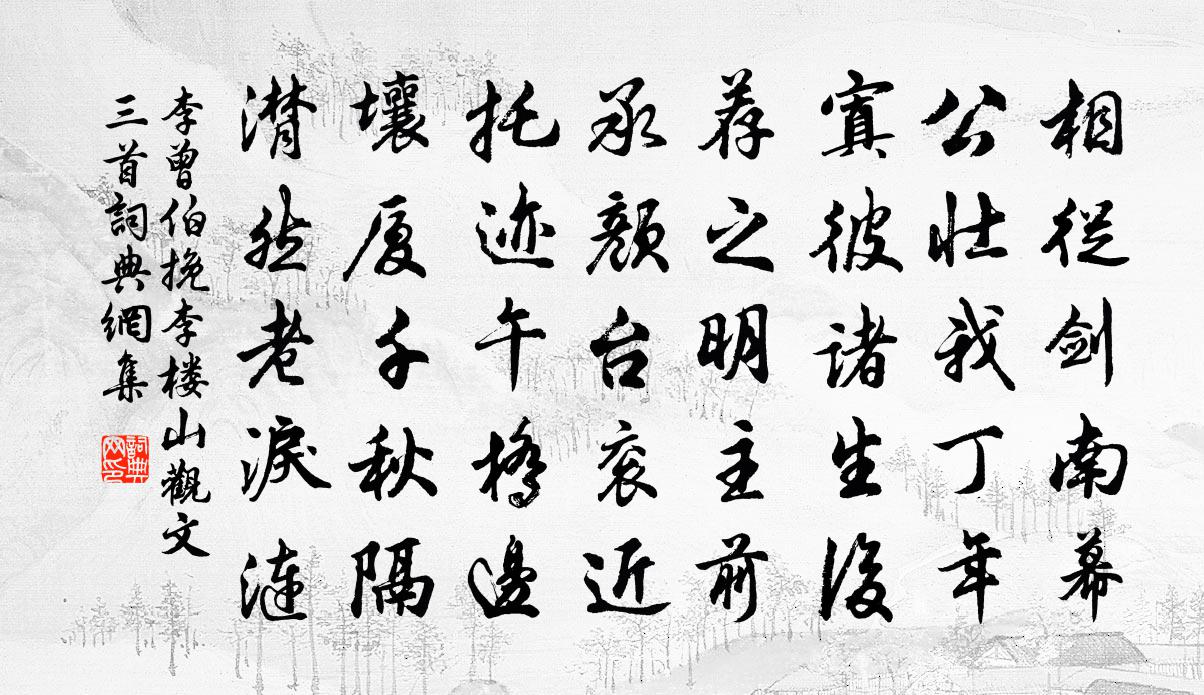 相從剑南幕
公壮我丁年
寘彼诸生後
荐之明主前
承颜台衮近
托迹午橋邊
壤厦千秋隔
潸然老淚涟
李曾伯挽李楼山觀文
三首詞典網集
詞典网印